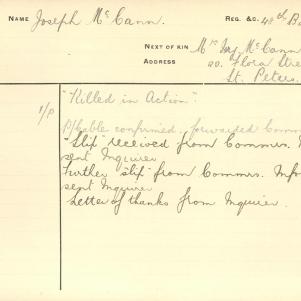 NAME Joseph McCann. REG. &C. 4th B
NEXT OF KIN Mrs McCann
ADDRESS 20. Flora Stre
St. Peters.
"Killed in Action".
1/P
P/Cable confirmed, forwarded Comm
"Slip" received from Commrs.
sent Inquirer
Further "slip" from Commrs. Info
sent Inquirer
Letter of thanks from Inquirer.